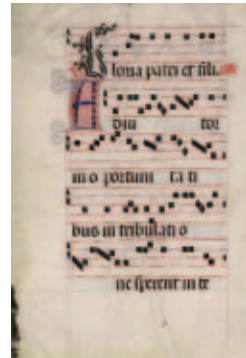 loria patri et fili.
A
diu tor
in o portuni ta ti
bus in tribulati o
ne sperent in te